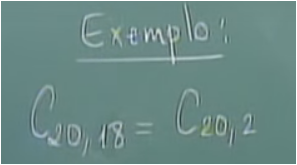 Exemplo:
C20,18 = C20,2